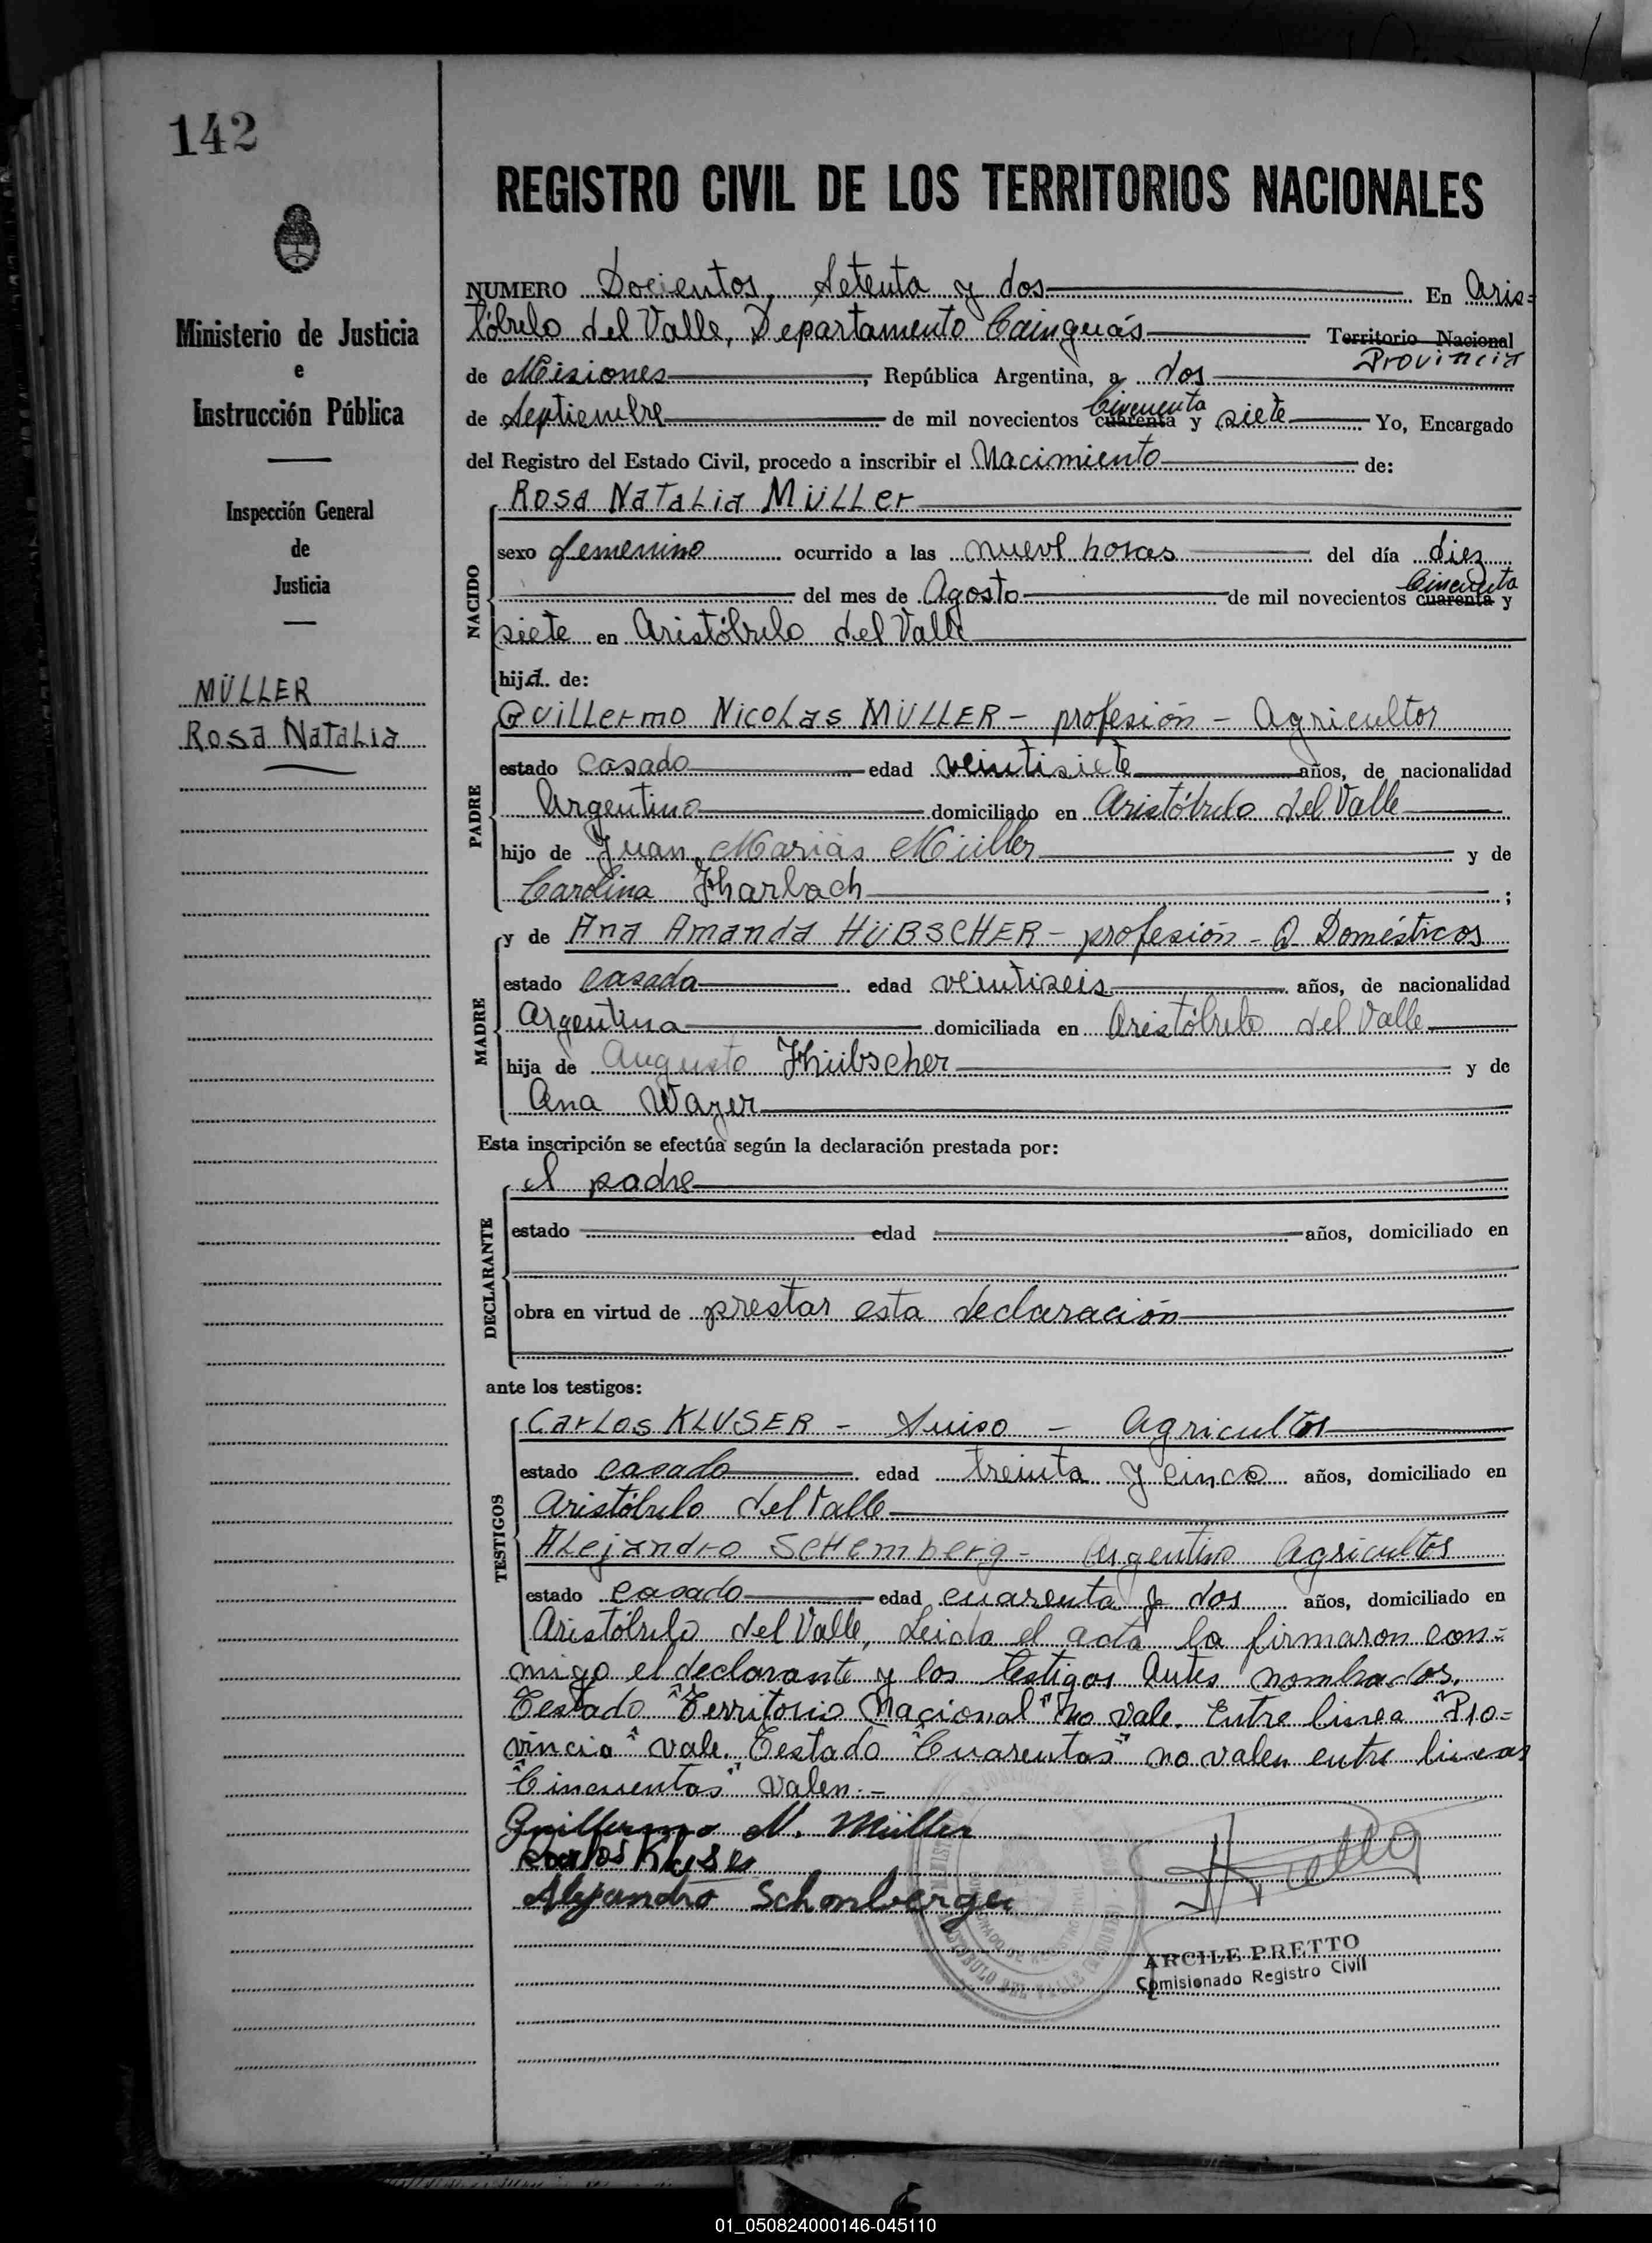 142
REGISTRO CIVIL DE LOS TERRITORIOS NACIONALES
Ministerio de Justicia
e
Instrucción Pública
Inspección General
de
Justicia
MÜLLER
Rosa Natalia
NUMERO Docientos, Setenta y dos En Aris=
tóbulo del Valle, Departamento Cainguás Territorio Nacional
Provincia
de Misiones, República Argentina, a dos
Cincuenta
de Septiembre de mil novecientos cuarenta y siete Yo, Encargado
del Registro del Estado Civil, procedo a inscribir el Nacimiento de:
NACIDO
Rosa Natalia Müller
sexo femenino ocurrido a las nueve horas del día diez
Cincuenta
del mes de Agosto de mil novecientos cuarenta y
siete en Aristóbulo del Valle
hija de:
PADRE
Guillermo Nicolas MÜLLER - profesión - Agricultor
estado casado edad veintisiete años, de nacionalidad
Argentino domiciliado en Aristóbulo del Valle
hijo de Juan Marias Müller y de
Carolina Jharbach ;
MADRE
y de Ana Amanda HÜBSCHER - profesión - Q. Domésticos
estado casada edad veintiseis años, de nacionalidad
Argentina domiciliada en Aristóbulo del Valle
hija de Augusto Jhübscher y de
Ana Wayer
Esta inscripción se efectúa según la declaración prestada por:
DECLARANTE
el padre
estado edad años, domiciliado en
obra en virtud de prestar esta declaración
ante los testigos:
TESTIGOS
Carlos KLUSER - Suiso - Agricultor
estado casado edad treinta y cinco años, domiciliado en
Aristóbulo del Valle
Alejandro Schemberg - Argentino Agricultor
estado casado edad cuarenta y dos años, domiciliado en
Aristóbulo del Valle, Leida el acta la firmaron con=
migo el declarante y los testigos Antes nombrados.
Testado "Territorio Nacional" no vale. Entre linea "Pro=
vincia" vale. Testado "Cuarentas" no valen entre lineas
"Cincuentas" valen.-
Guillermo N. Müller
Carlos Kluser
Alejandro Schonberger
ARCILE PRETTO
Comisionado Registro Civil
01_050824000146-045110